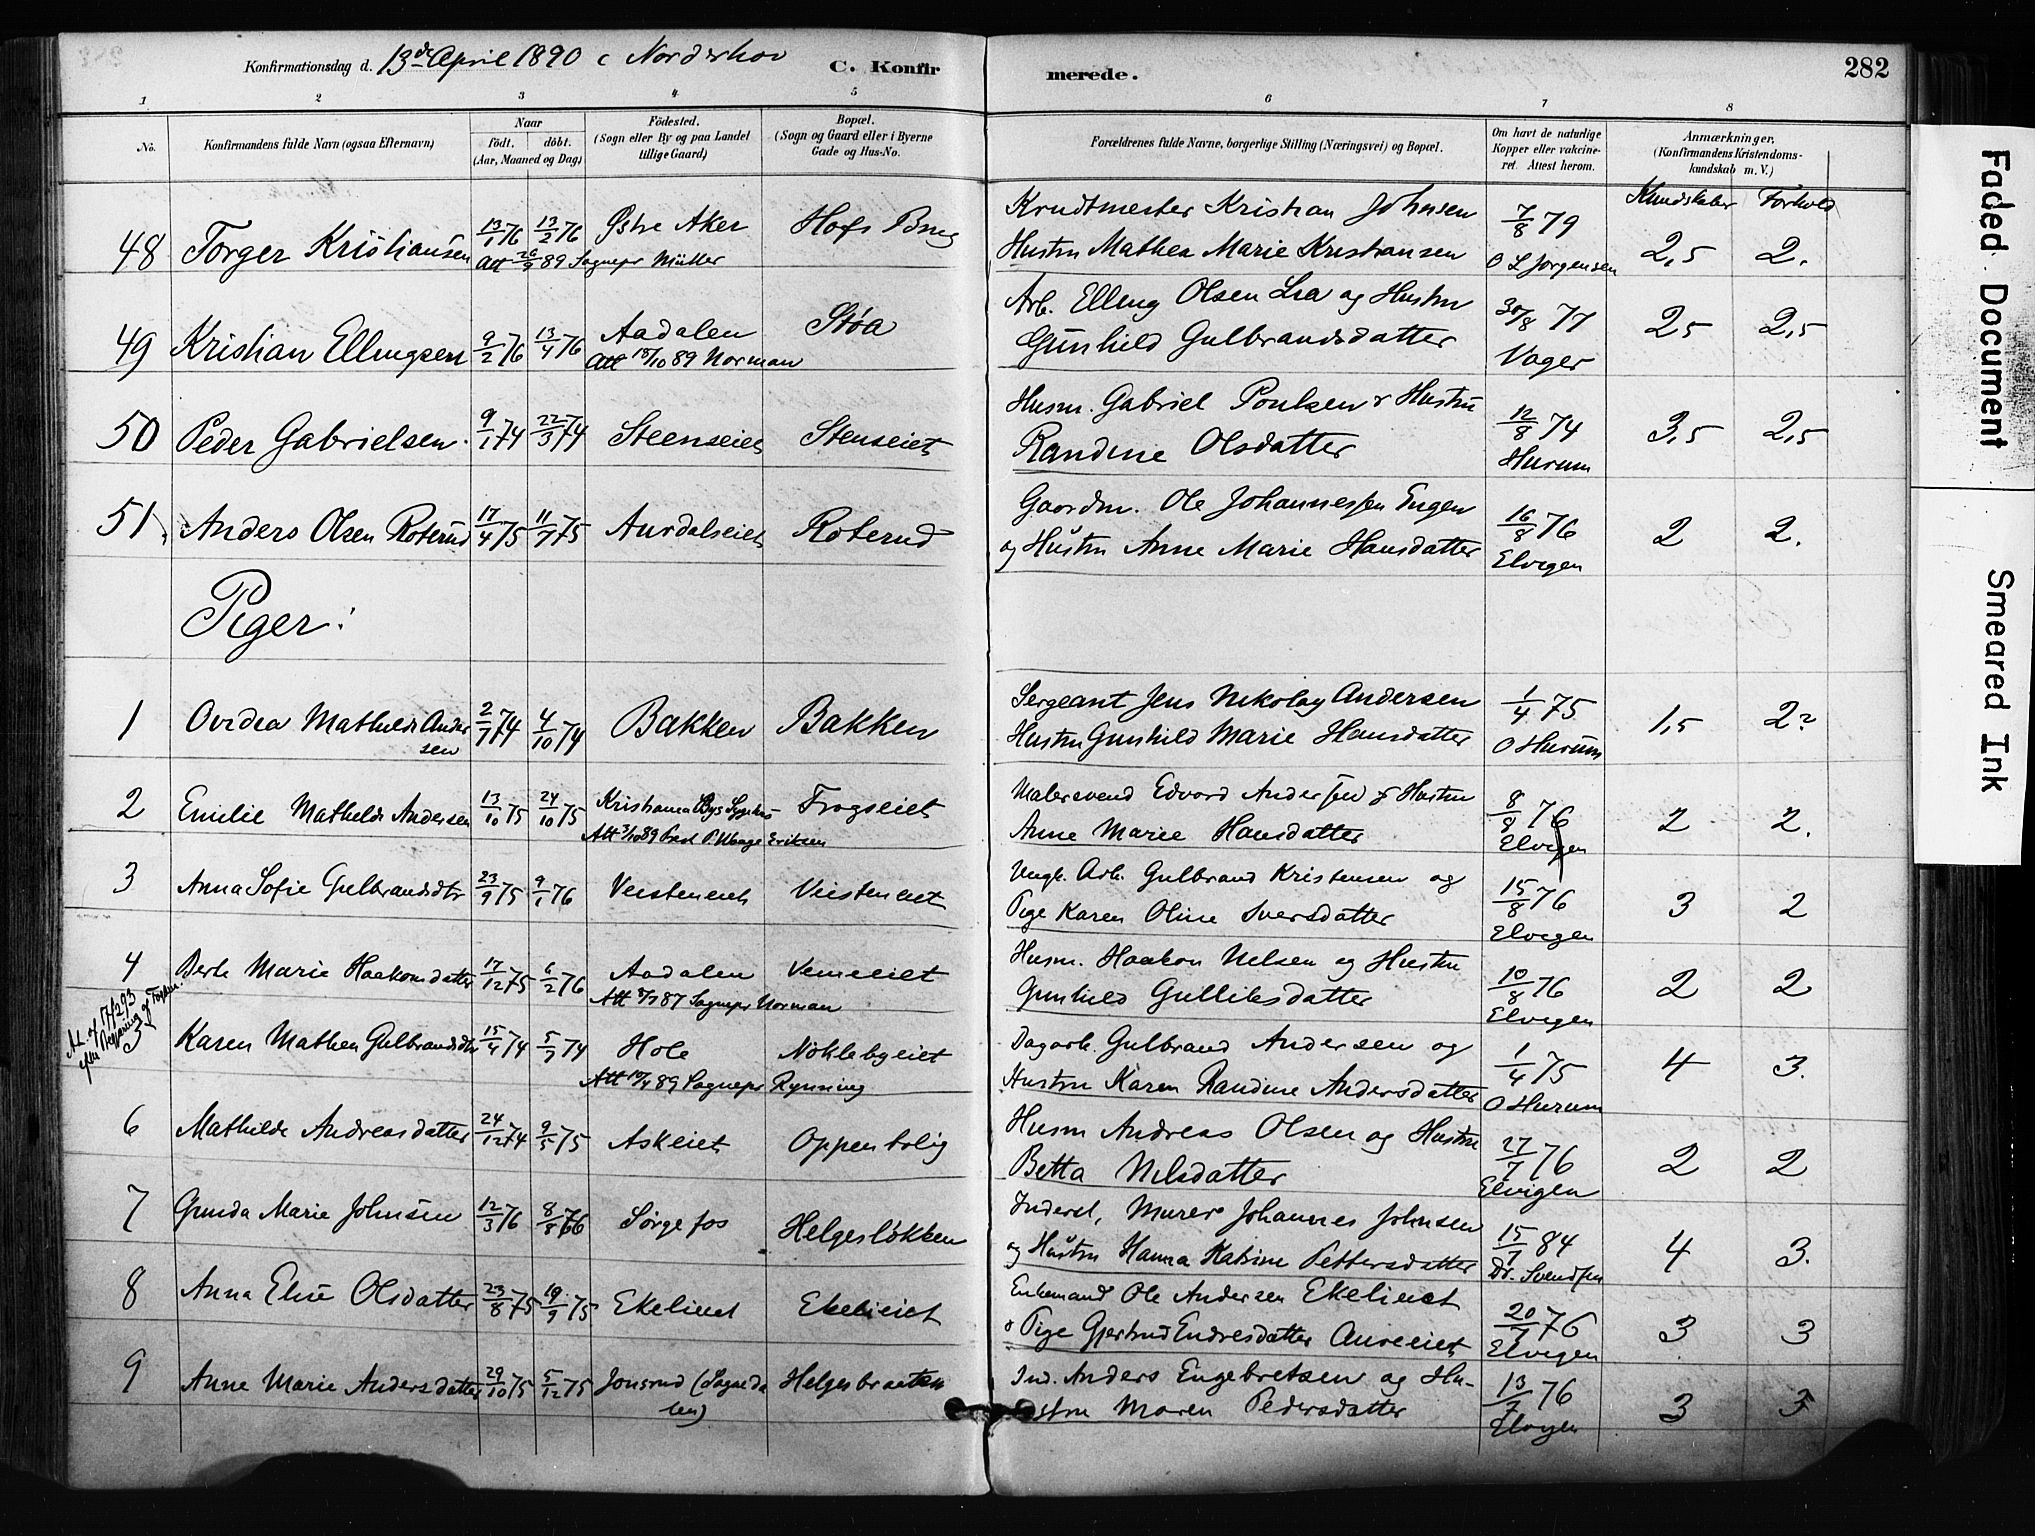 Konfirmationsdag d. 13de April 1890 i Norderhov C. Konfirmerede. 282
1 2 3 4 5 6 7 8
No. Konfirmandens fulde Navn (ogsaa Efternavn) Naar födt. döbt. (Aar, Maaned og Dag) Födested. (Sogn eller By og paa Landet tillige Gaard) Bopæl. (Sogn og Gaard eller i Byerne Gade og Hus-No. Forældrenes fulde Navne, borgerlige Stilling (Næringsvei) og Bopæl. Om havt de naturlige Kopper eller vakcineret. Attest herom. Anmærkninger, (Konfirmandens Kristendomskundskab m. V.)
Kundskaber Forhold
48 Torger Kristiansen 13/1 76 13/2 76 Østre Aker Hofs Brug Krudtmester Kristian Johnsen 7/8 79 2,5 2.
Att 26/9 89 Sognepr Müller Hustru Mathea Marie Kristiansen O L Jørgensen
49 Kristian Ellingsen 9/2 76 13/4 76 Aadalen Støa Arb. Elling Olsen Lia og Hustru 30/8 77 25 2,5
Att 18/10 89 Norman Gunhild Gulbrandsdatter Vager
50 Peder Gabrielsen 9/1 74 22/3 74 Steenseiet Stenseiet Husm. Gabriel Poulsen & Hustru 12/8 74 3,5 2,5
Randine Olsdatter Hurum
51. Anders Olsen Roterud 17/4 75 11/7 75 Aurdalseiet Roterud Gaardm. Ole Johannessen Engen 16/8 76 2 2.
og Hustru Anne Marie Hansdatter Elvigen
Piger:
1 Ovidia Mathilde Andersen 2/7 74 4/10 74 Bakken Bakken Sergeant Jens Nikolay Andersen 1/4 75 1,5 2?
Hustru Gunhild Marie Hansdatter O Hurum
2 Emilie Mathilde Andersen 13/10 75 24/10 75 Kristiania Bys Sygehus Frogseiet Malersvend Edvard Andersen & Hustru 8/8 76 2 2.
Att 3/10 89 Prest P. Waage Eriksen Anne Marie Hansdatter Elvigen
3 Anna Sofie Gulbrandsdtr 23/9 75 9/1 76 Veisteneiet Veisteneiet Ungk. Arb. Gulbrand Kristensen og 15/8 76 3 2
Pige Karen Oline Iversdatter Elvigen
4 Berte Marie Haakonsdatter 17/12 75 6/2 76 Aadalen Vemeeiet Husm. Haakon Nilsen og Hustru 10/8 76 2 2
Att 8/7 87 Sognepr Norman Gunhild Gulliksdatter Elvigen
A.L. af 17/2 93 efter Begjæring af
5 Karen Mathea Gulbrandsdtr 15/4 74 5/7 74 Hole Nøklebyeiet Dagarb. Gulbrand Andersen og 1/4 75 4 3.
Att 10/4 89 Sognepr Rynning Hustru Karen Randine Andersdatter O Hurum
6 Mathilde Andreasdatter 24/12 74 9/5 75 Askeiet Oppenbolig Husm Andreas Olsen og Hustru 27/7 76 2 2
Betta Nilsdatter Elvigen
7 Gunda Marie Johnsen 12/3 76 8/8 76 Sørgefos Helgesløkken Inderst, Murer Johannes Johnsen 15/7 84 4 3.
og Hustru Hanna Katrine Pettersdatter Dr. Svendsen
8 Anna Elise Olsdatter 23/8 75 19/9 75 Ekelieiet Ekelieiet Enkemand Ole Andersen Ekelieiet 20/7 76 3 3
& Pige Gjertrud Endresdatter Aureeiet Elvigen
9 Anne Marie Andersdatter 29/10 75 5/12 75 Jonsrud (Sogndalen) Helgesbraaten Ind. Anders Engebretsen og Hu- 13/7 76 3 3
stru Maren Pedersdatter Elvigen
Faded Document
Smeared Ink